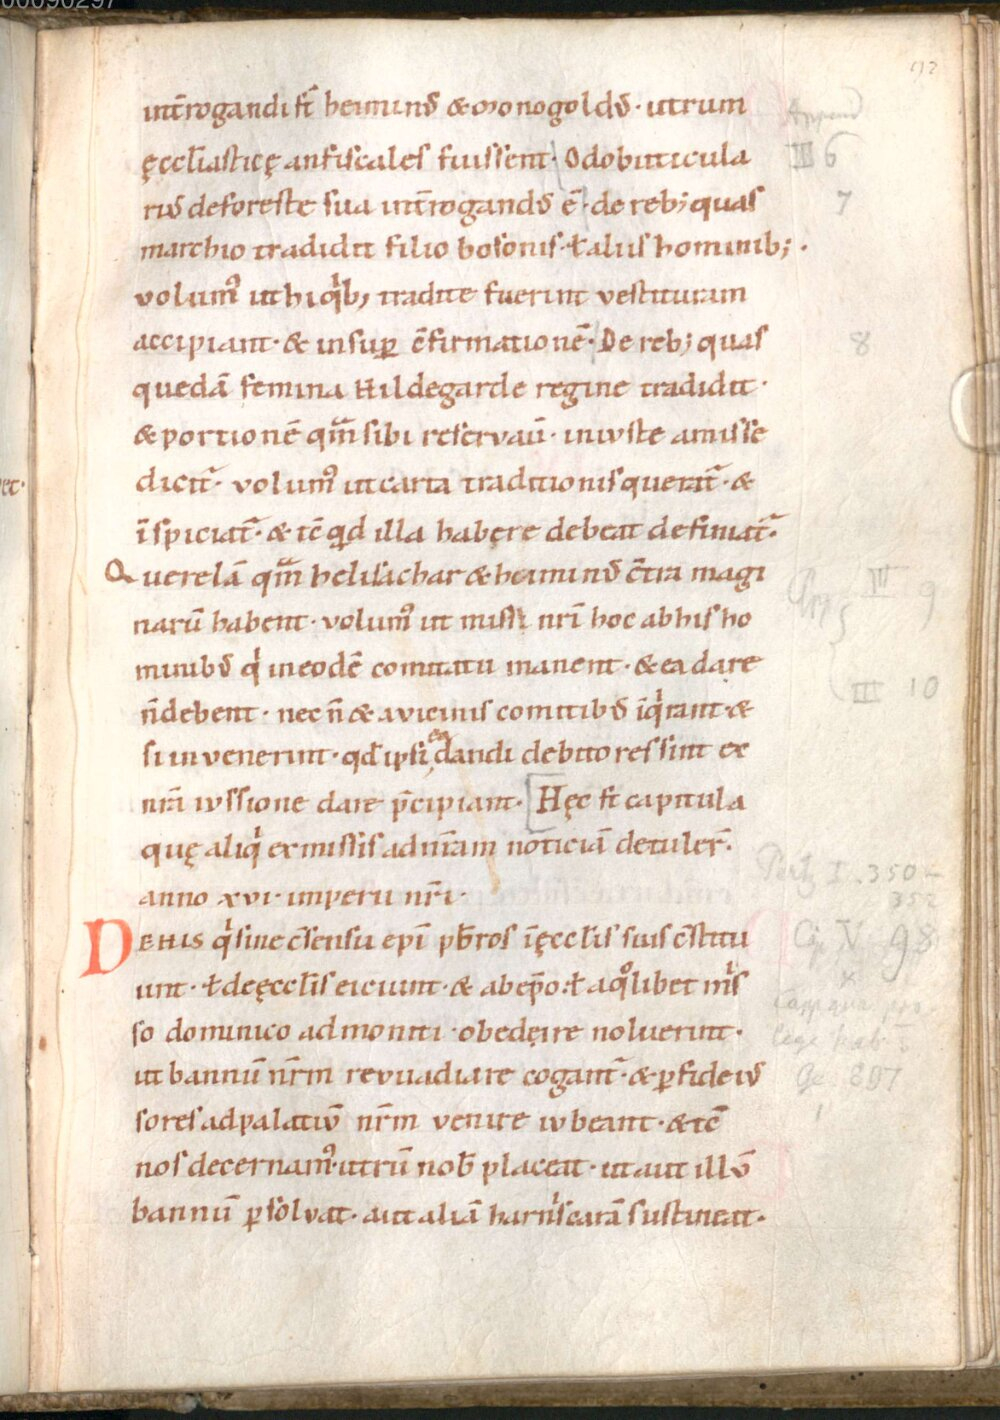 int̄rogandi st̄ heiminꝰ & monogoldꝰ · utrum
ęccl̄iasticę an fiscales fuissent · Odo buticula
riꝰ de foreste sua int̄rogandꝰ ē · de reb; quas
marchio tradidit filio bosonis · ł aliis hominib; ·
volumꝰ ut hi qͥb; tradite fuerint vestituram
accipiant · & insup̱ c̄firmationē · De reb; quas
quedā femina Hildegarde regine tradidit ·
& portionē qm̄ sibi reservavit̄ · iniuste amisse
dicit̄ · volumꝰ ut carta traditionis querat̄ · &
īspiciat̄ · & tc̄ qd illa habere debeat definiat̄ ·
Querelā qm̄ helisachar & heiminꝰ c̄tra magi
nariū habent · volumꝰ ut missi nr̄i hoc ab his ho
minibꝰ qͥ in eodē comitatu manent · & ea dare
n̄ debent · nec n̄ & a vicinis comitibꝰ īqͥrant · &
si invenerint · qd̄ ipsi ea dandi debitores sint ex
nr̄a iussione dare p̄cipiant · Hęc st̄ capitula
quę aliqͥ ex missis ad nr̄am noticiā detuler̄ ·
anno xvi · imperii nr̄i ·
DE HIS qͥ sine c̄sensu epī pb̄ros ī ęccl̄is suis c̄stitu
unt · ł de ęccl̄is eiciunt · & ab ep̄o · ł a qͦlibet mͥs
so dominico admoniti · obedeire noluerint ·
ut bannū nr̄m revuadiare cogant̄ · & p̱ fideiꝰ
sores ad palatiū nr̄m venire iubeant · & tc̄
nos decernamꝰ · utrū nob̄ placeat · ut aut illū
bannū p̱solvat · aut aliā harmͥscarā sustineat ·
Append
III 6
7
8
App
IV 9
III 10
Pertz I. 350
352
Cap V. 98